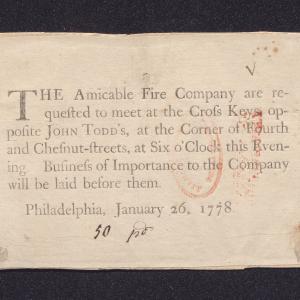 THE Amicable Fire Company are re-
quested to meet at the Croſs Keys, op-
poſite JOHN TODD's, at the Corner of Fourth
and Cheſnut-ſtreets, at Six o'Clock this Even-
ing Buſineſs of Importance to the Company
will be laid before them.
Philadelphia, January 26, 1778
50